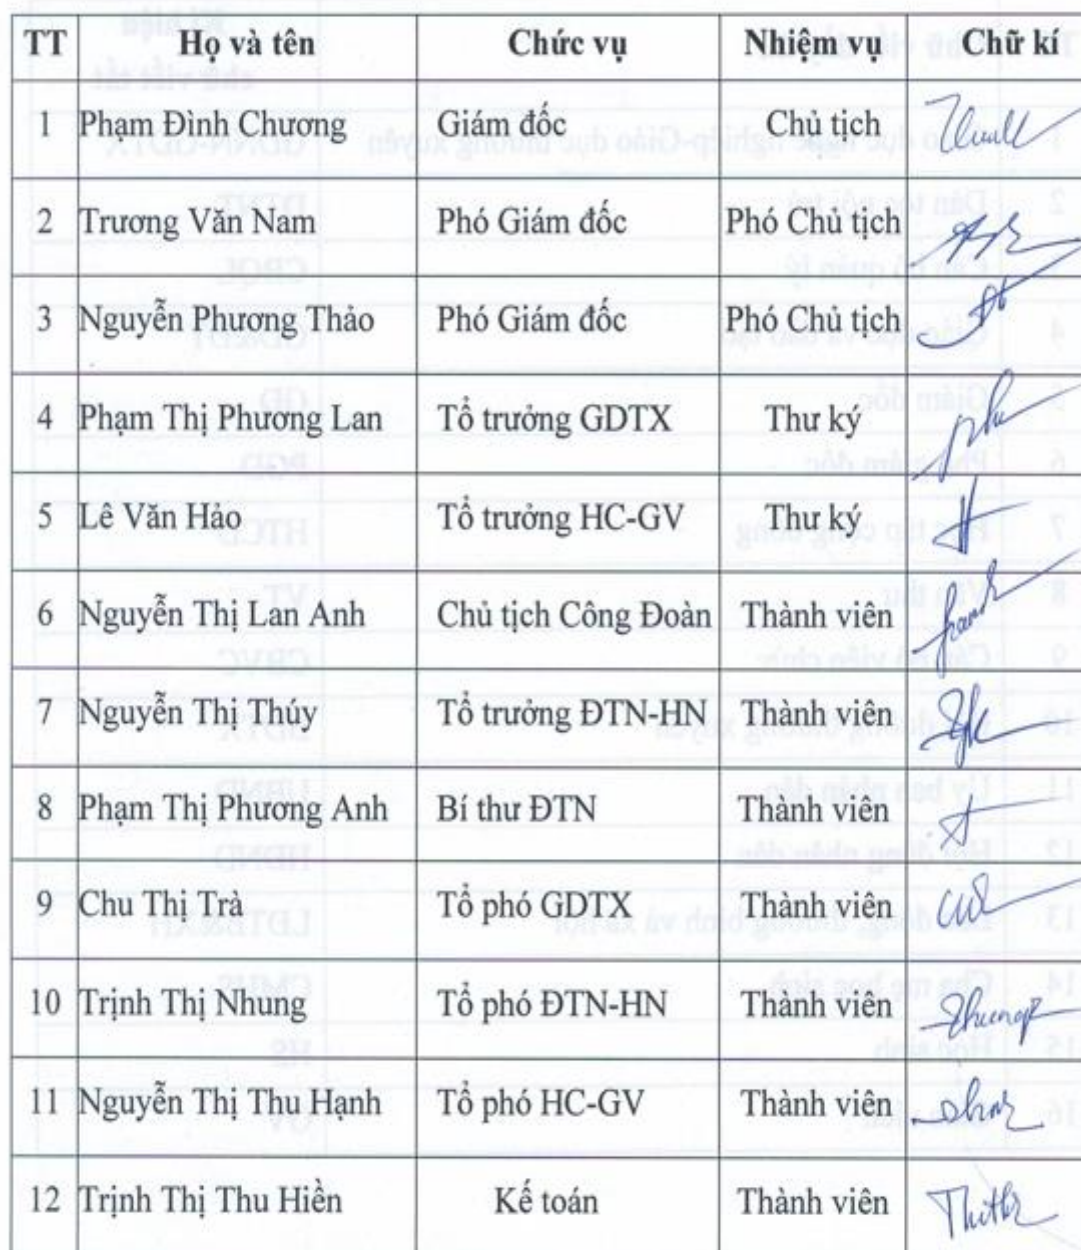 TT Họ và tên Chức vụ Nhiệm vụ Chữ kí
1 Phạm Đình Chương Giám đốc Chủ tịch
2 Trương Văn Nam Phó Giám đốc Phó Chủ tịch
3 Nguyễn Phương Thảo Phó Giám đốc Phó Chủ tịch
4 Phạm Thị Phương Lan Tổ trưởng GDTX Thư ký
5 Lê Văn Hảo Tổ trưởng HC-GV Thư ký
6 Nguyễn Thị Lan Anh Chủ tịch Công Đoàn Thành viên
7 Nguyễn Thị Thúy Tổ trưởng ĐTN-HN Thành viên
8 Phạm Thị Phương Anh Bí thư ĐTN Thành viên
9 Chu Thị Trà Tổ phó GDTX Thành viên
10 Trịnh Thị Nhung Tổ phó ĐTN-HN Thành viên
11 Nguyễn Thị Thu Hạnh Tổ phó HC-GV Thành viên
12 Trịnh Thị Thu Hiền Kế toán Thành viên